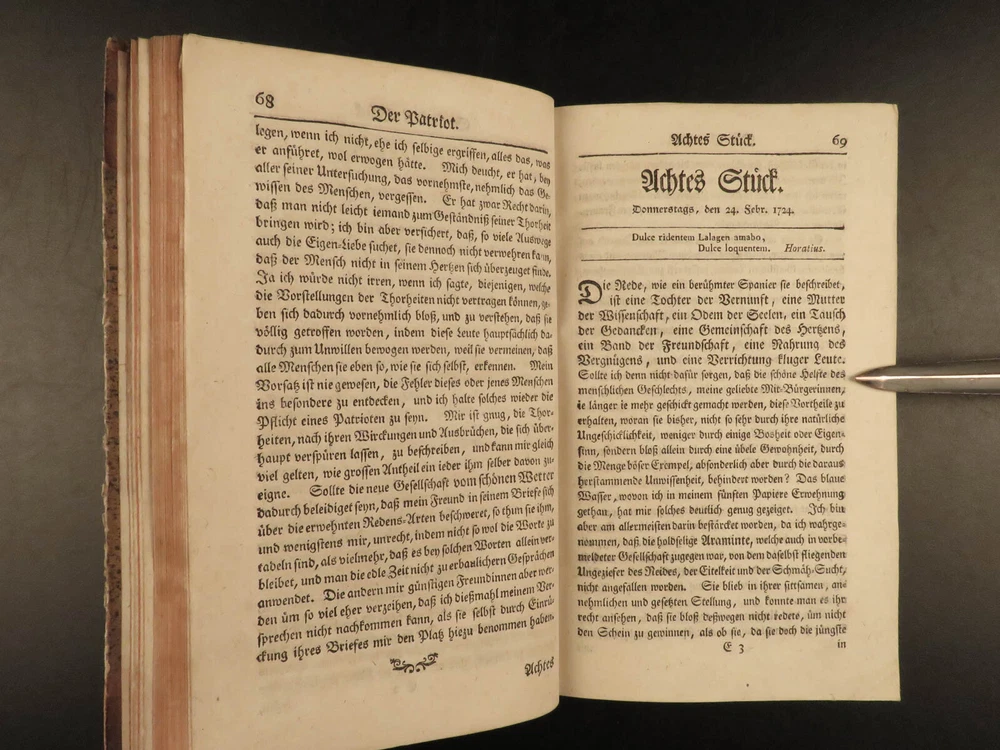 68
Der Patriot.
legen, wenn ich nicht, ehe ich selbige ergriffen, alles das, was
er anführet, wol erwogen hätte. Mich deucht, er hat, bey
aller seiner Untersuchung, das vornehmste, nehmlich das Ge-
wissen des Menschen, vergessen. Er hat zwar Recht darin,
daß man nicht leicht iemand zum Geständniß seiner Thorheit
bringen wird; ich bin aber versichert, daß, so viele Auswege
auch die Eigen-Liebe suchet, sie dennoch nicht verwehren kann,
daß der Mensch nicht in seinem Hertzen sich überzeuget finde.
Ja ich würde nicht irren, wenn ich sagte, diejenigen, welche
die Vorstellungen der Thorheiten nicht vertragen können, ge-
ben sich dadurch vornehmlich bloß, und zu verstehen, daß sie
völlig getroffen worden, indem diese Leute hauptsächlich da-
durch zum Unwillen bewogen werden, weil sie vermeinen, daß
alle Menschen sie eben so, wie sie sich selbst, erkennen. Mein
Vorsatz ist nie gewesen, die Fehler dieses oder jenes Menschen
ins besondere zu entdecken, und ich halte solches wieder die
Pflicht eines Patrioten zu seyn. Mir ist gnug, die Thor-
heiten, nach ihren Wirckungen und Ausbrüchen, die sich über-
haupt verspüren lassen, zu beschreiben, und kann mir gleich
viel gelten, wie grossen Antheil ein ieder ihm selber davon zu-
eigne. Sollte die neue Gesellschaft vom schönen Wetter
dadurch beleidiget seyn, daß mein Freund in seinem Briefe sich
über die erwehnten Redens-Arten beschweret, so thun sie ihm,
und wenigstens mir, unrecht, indem nicht so wol die Worte zu
tadeln sind, als vielmehr, daß es bey solchen Worten allein ver-
bleibet, und man die edle Zeit nicht zu erbaulichern Gesprächen
anwendet. Die andern mir günstigen Freundinnen aber wer-
den üm so viel eher verzeihen, daß ich dießmahl meinem Ver-
sprechen nicht nachkommen kann, als sie selbst durch Einrü-
ckung ihres Briefes mir den Platz hiezu benommen haben.
Achtes
Achtes Stück.
69
Achtes Stück.
Donnerstags, den 24. Febr. 1724.
Dulce ridentem Lalagen amabo,
Dulce loquentem. Horatius.
Die Rede, wie ein berühmter Spanier sie beschreibet,
ist eine Tochter der Vernunft, eine Mutter
der Wissenschaft, ein Odem der Seelen, ein Tausch
der Gedancken, eine Gemeinschaft des Hertzens,
ein Band der Freundschaft, eine Nahrung des
Vergnügens, und eine Verrichtung kluger Leute.
Sollte ich denn nicht dafür sorgen, daß die schöne Helfte des
menschlichen Geschlechts, meine geliebte Mit-Bürgerinnen,
ie länger ie mehr geschickt gemacht werden, diese Vortheile zu
erhalten, woran sie bisher, nicht so sehr durch ihre natürliche
Ungeschicklichkeit, weniger durch einige Bosheit oder Eigen-
sinn, sondern bloß allein durch eine übele Gewohnheit, durch
die Menge böser Exempel, absonderlich aber durch die daraus
herstammende Unwissenheit, behindert worden? Das blaue
Wasser, wovon ich in meinem fünften Papiere Erwehnung
gethan, hat mir solches deutlich genug gezeiget. Ich bin
aber am allermeisten darin bestärcket worden, da ich wahrge-
nommen, daß die holdselige Araminte, welche auch in vorbe-
meldeter Gesellschaft zugegen war, von dem daselbst fliegenden
Ungeziefer des Neides, der Eitelkeit und der Schmäh-Sucht,
nicht angefallen worden. Sie blieb in ihrer sittsamen, an-
nehmlichen und gesetzten Stellung, und konnte man es ihr
recht ansehen, daß sie bloß deßwegen nicht redete, üm nicht
den Schein zu gewinnen, als ob sie, da sie doch die jüngste
E 3
in